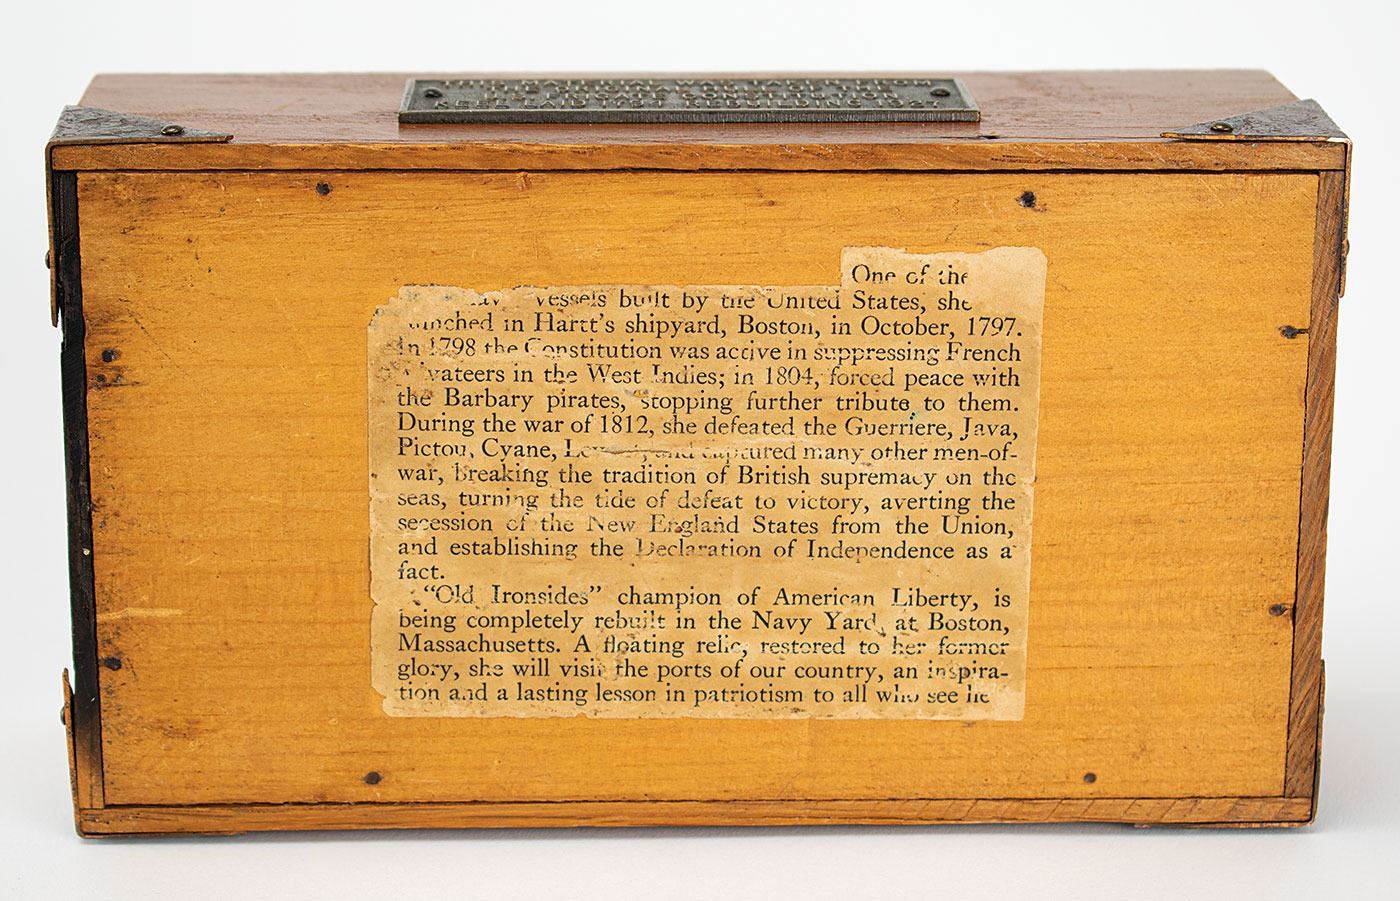 THIS MATERIAL WAS TAKEN FROM
KEEL LAID REBUILDING 1927
One of the
vessels built by the United States, she
in Hartt's shipyard, Boston, in October, 1797.
In 1798 the Constitution was active in suppressing French
in the West Indies; in 1804, forced peace with
the Barbary pirates, stopping further tribute to them.
During the war of 1812, she defeated the Guerriere, Java,
Pictou, Cyane, and captured many other men-of-
war, breaking the tradition of British supremacy on the
seas, turning the tide of defeat to victory, averting the
secession of the New England States from the Union,
and establishing the Declaration of Independence as a
fact.
"Old Ironsides" champion of American Liberty, is
being completely rebuilt in the Navy Yard, at Boston,
Massachusetts. A floating relic, restored to her former
glory, she will visit the ports of our country, an inspira-
tion and a lasting lesson in patriotism to all who see